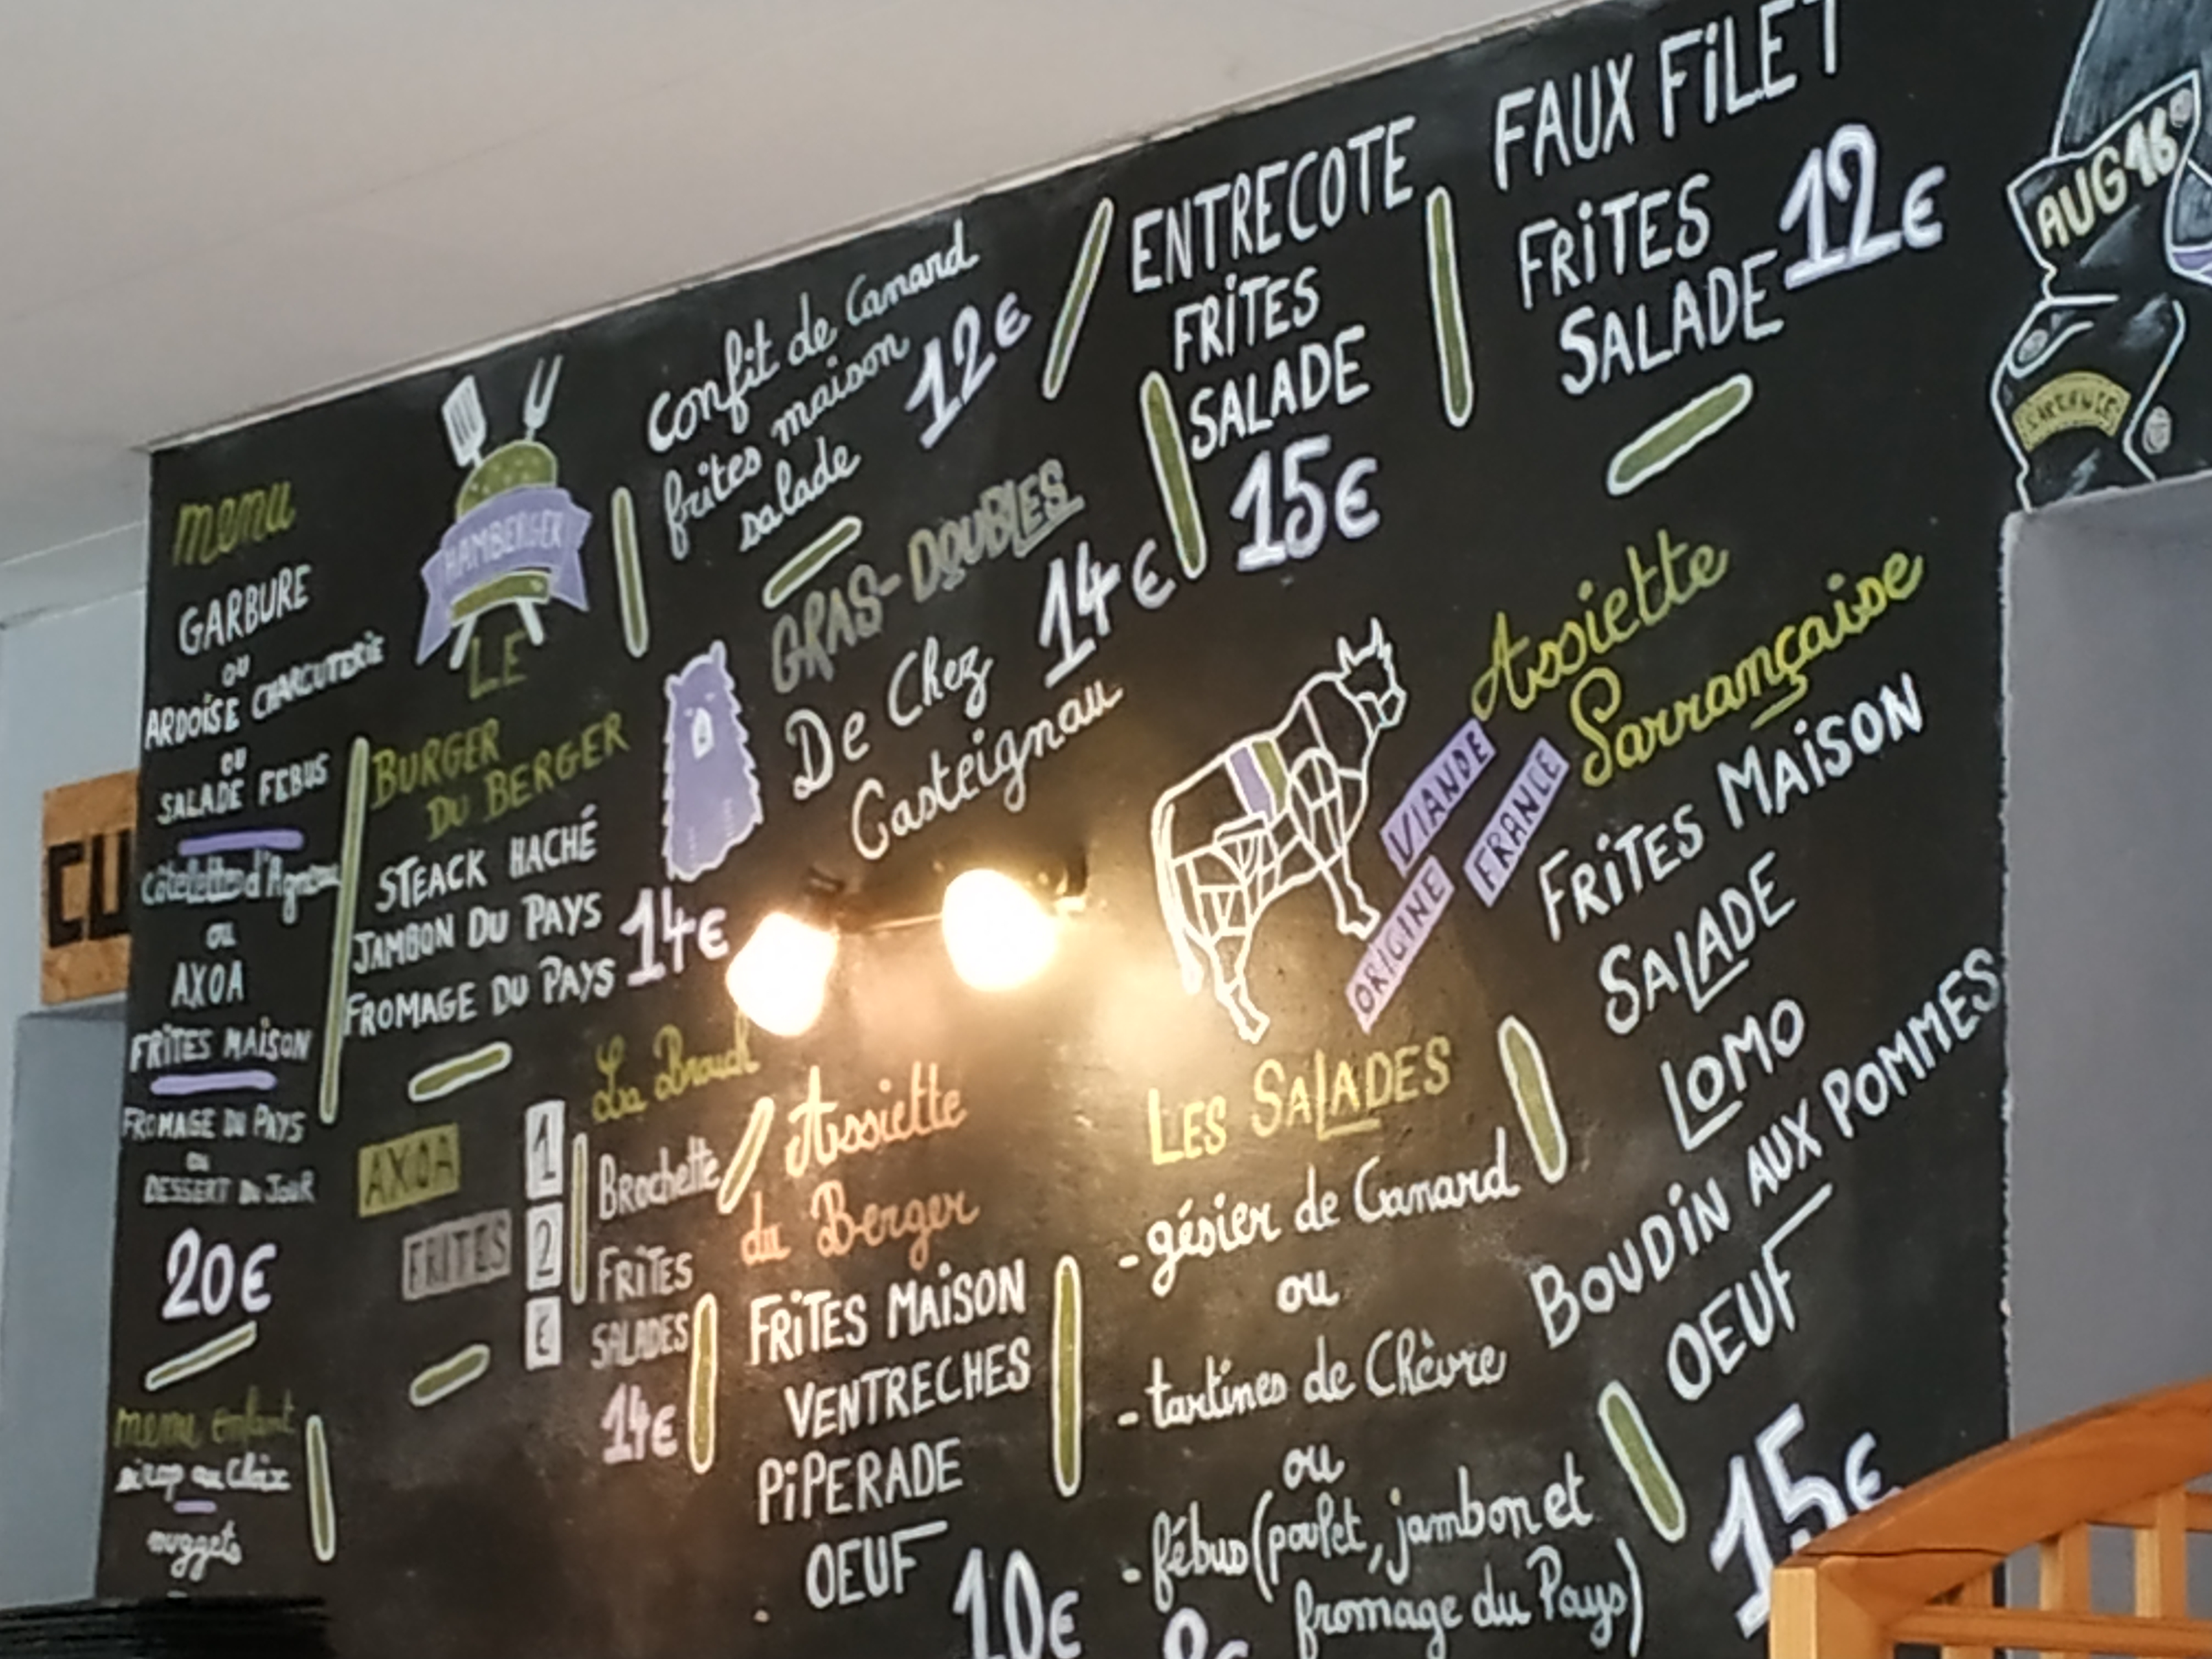 menu
GARBURE
OU
ARDOISE CHARCUTERIE
OU
SALADE FEBUS
Côtelettes d'Agneau
OU
AXOA
FRITES MAISON
FROMAGE DU PAYS
OU
DESSERT DU JOUR
20€
menu enfant
sirop au Choix
nuggets
HAMBERGER
LE
BURGER
DU BERGER
STEACK HACHÉ
JAMBON DU PAYS
FROMAGE DU PAYS
14€
AXOA
FRITES
1
2
€
La
Brochette
FRITES
SALADES
14€
confit de Canard
frites maison
salade
12€
GRAS-DOUBLES
De Chez
Casteignau
14€
Assiette
du Berger
FRITES MAISON
VENTRECHES
PIPERADE
OEUF
10€
ENTRECOTE
FRITES
SALADE
15€
FAUX FILET
FRITES
SALADE
12€
VIANDE
ORIGINE
FRANCE
LES SALADES
- gésier de Canard
ou
- tartines de Chèvre
ou
- fébus (poulet, jambon et
fromage du Pays)
Assiette
Sarrançaise
FRITES MAISON
SALADE
LOMO
BOUDIN AUX POMMES
OEUF
15€
AUG16
CU